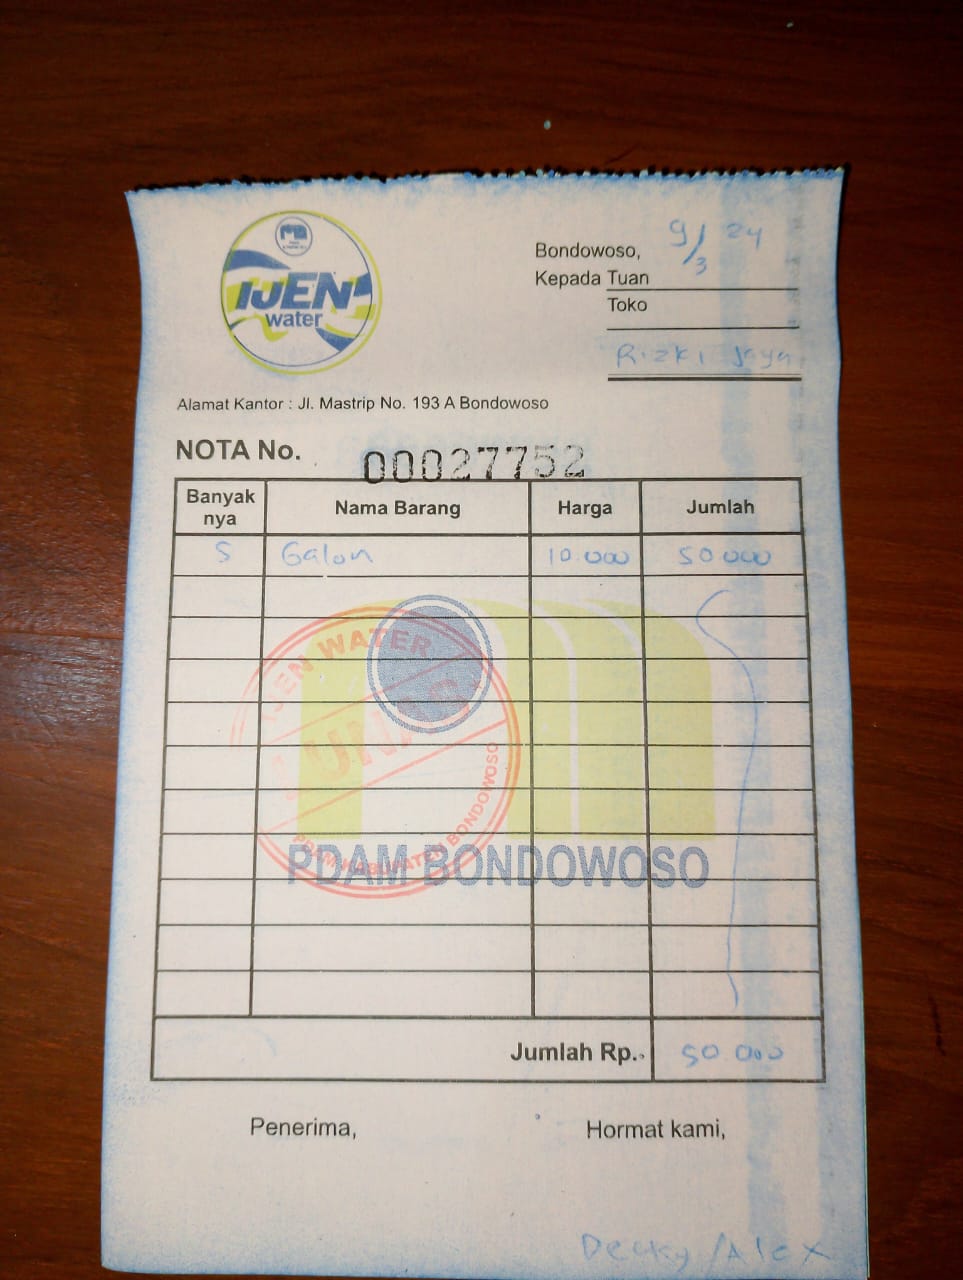 IJEN
water
Bondowoso, 9/3 24
Kepada Tuan
Toko
Rizki Jaya
Alamat Kantor : Jl. Mastrip No. 193 A Bondowoso
NOTA No. 00027752
Banyak nya Nama Barang Harga Jumlah
5 Galon 10.000 50 000
IJEN WATER
LUNAS
PDAM KABUPATEN BONDOWOSO
PDAM BONDOWOSO
Jumlah Rp. 50 000
Penerima, Hormat kami,
Decky/Alex